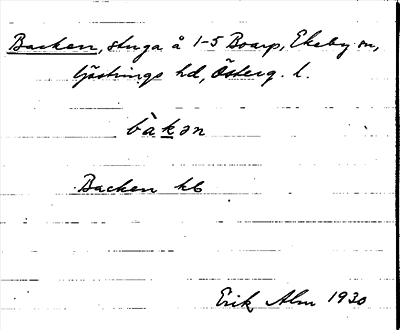 Backen, stuga å 1-5 Boarp, Ekeby sn,
Göstrings hd, Österg. l.
bàkən
Backen kb
Erik Alm 1930